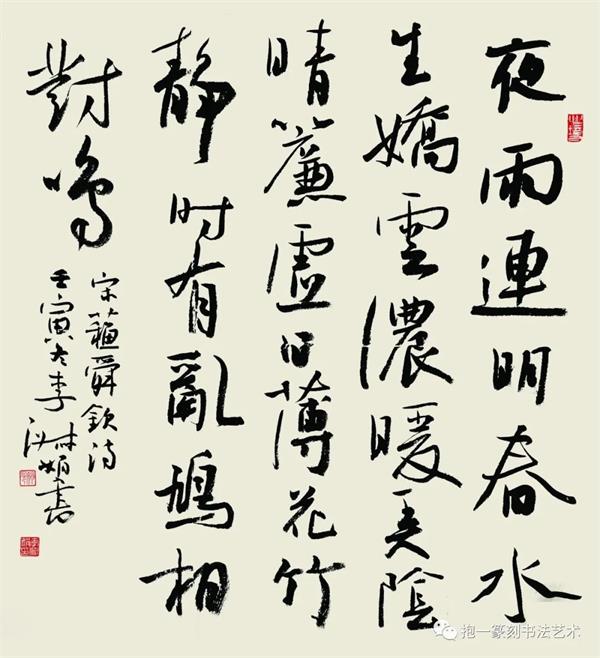 夜雨連明春水
生嬌雲濃暖弄陰
晴簾虛日薄花竹
静时有亂鳩相
對鳴
宋蘇舜欽诗
壬寅冬李書
抱一篆刻书法艺术